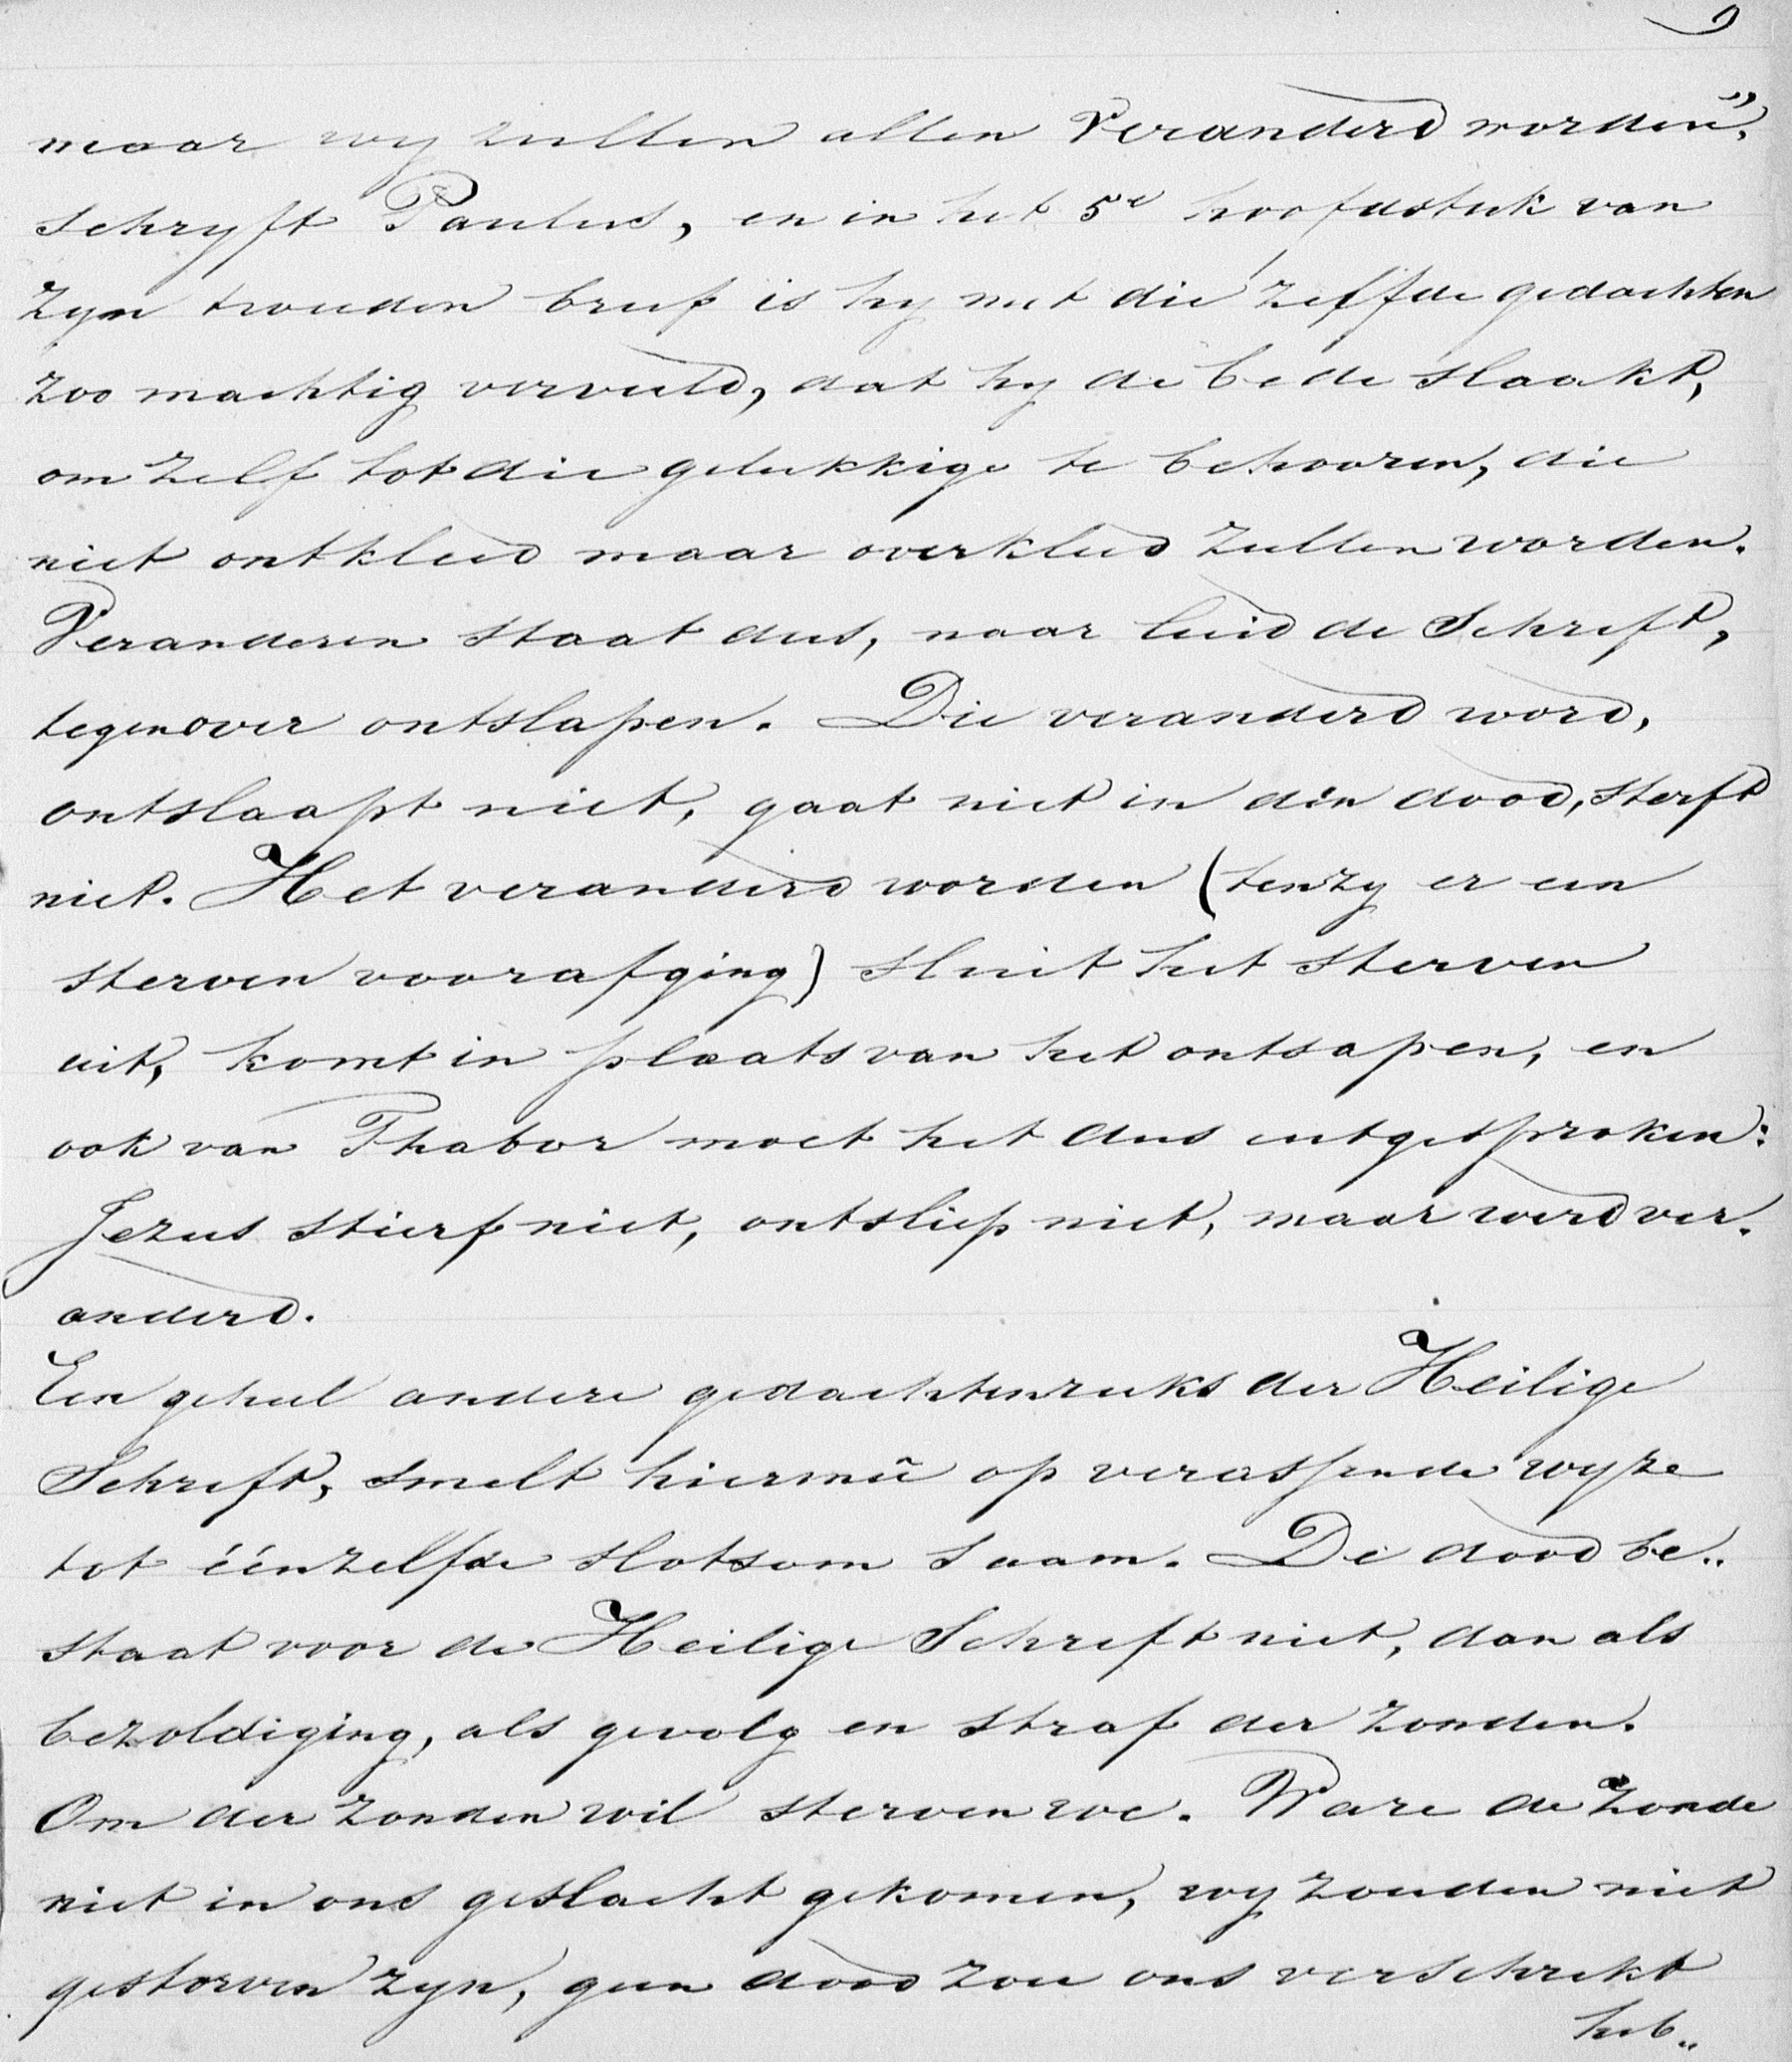 9
maar wy zullen allen Veranderd worden",
schryft Paulus, en in het 5e hoofdstuk van
Zyn tweeden brief is hy met die' zelfde gedachten
zoo machtig vervuld, dat hy de bede slaakt,
om zelf tot die gelukkige te behooren, die
niet ontkleed maar overkleed zullen worden.
Veranderen staat dus, naar luid de Schrift,
tegenover ontslapen. Die veranderd word,
ontslaapt niet, gaat niet in den dood, sterft
niet. Het veranderd worden (tenzy er een
sterven voorafging) sluit het sterven
uit, komt in plaats van het ontsapen, en
ook van Thabor moet het dus uitgesproken:
Jezus stierf niet, ontsliep niet, maar werd ver-
anderd.
Een geheel andere gedachtenreeks der Heilige
Schrift, smelt hiermeê op verassende wyze
tot éénzelfde slotsom saam. De dood be-
staat voor de Heilige Schrift niet, dan als
bezoldiging, als gevolg en straf der zonden.
Om der zonden wil sterven we. Ware de Zonde
niet in ons geslacht gekomen, wy zouden niet
gestorven zyn, geen dood zou ons verschrikt
heb-